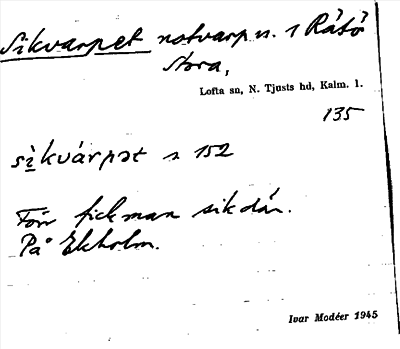 Sikvarpet notvarp n. 1 Råtö
Stora,
Lofta sn, N. Tjusts hd, Kalm. l.
135
sìkvárpət s 152
Förr fick man sik där.
På Ekholm.
Ivar Modéer 1945